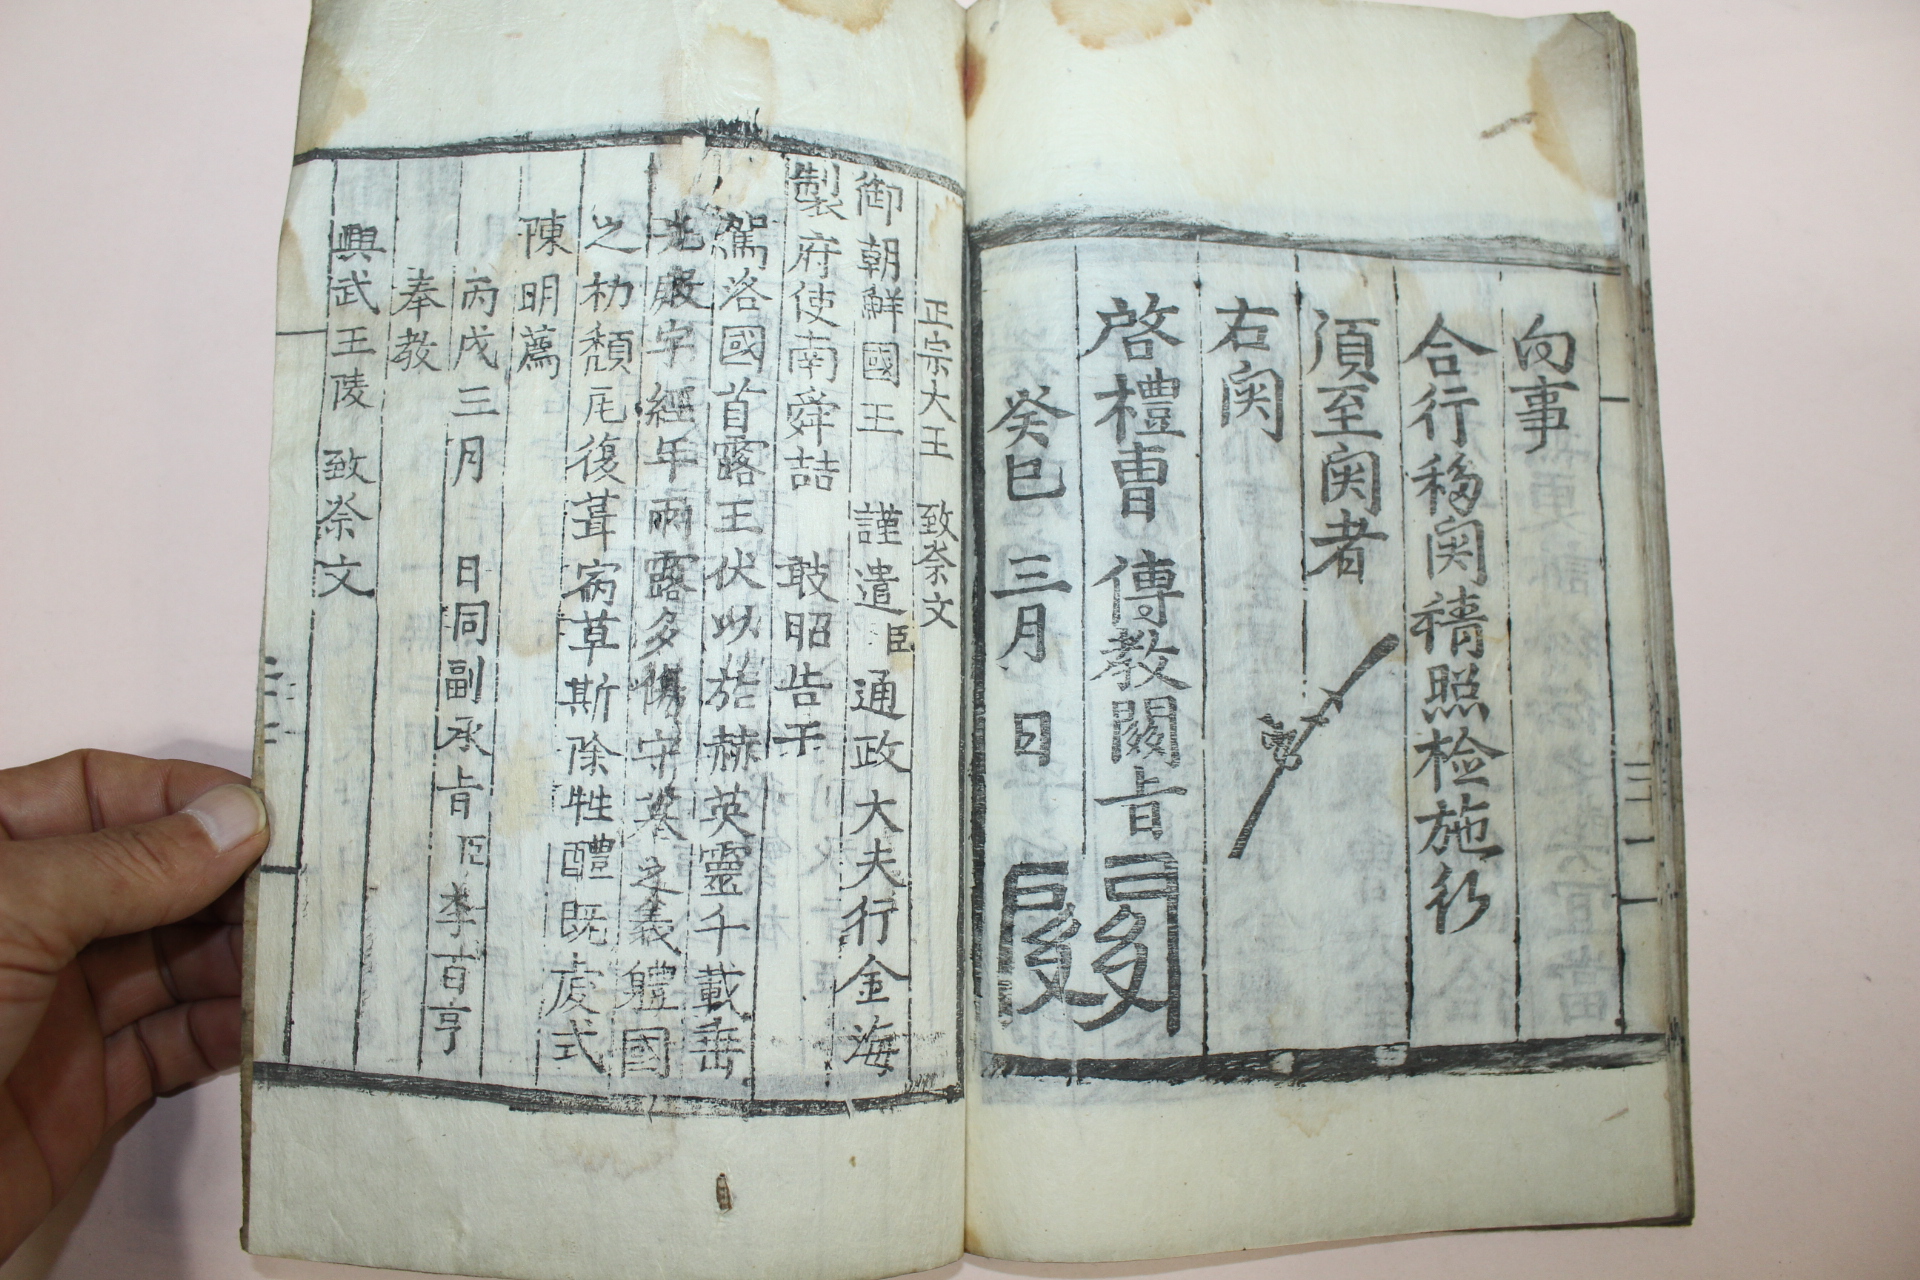 向事
合行移関請照檢施行
湏至関者
右関
啓禮曹 傳教関旨
癸巳 三月 日
関
正宗大王 致祭文
御朝鮮國王 謹遣臣通政大夫行金海
製府使南舜喆 敢昭告于
駕洛國首露王伏以於赫英靈千載垂
光廢字經年雨露多傷守墓之義軆國
之礿頹厇復葺宿草斯除牲醴既虔式
陳明薦
丙戌三月 日同副承旨臣李百亨
奉教
興武王陵 致祭文